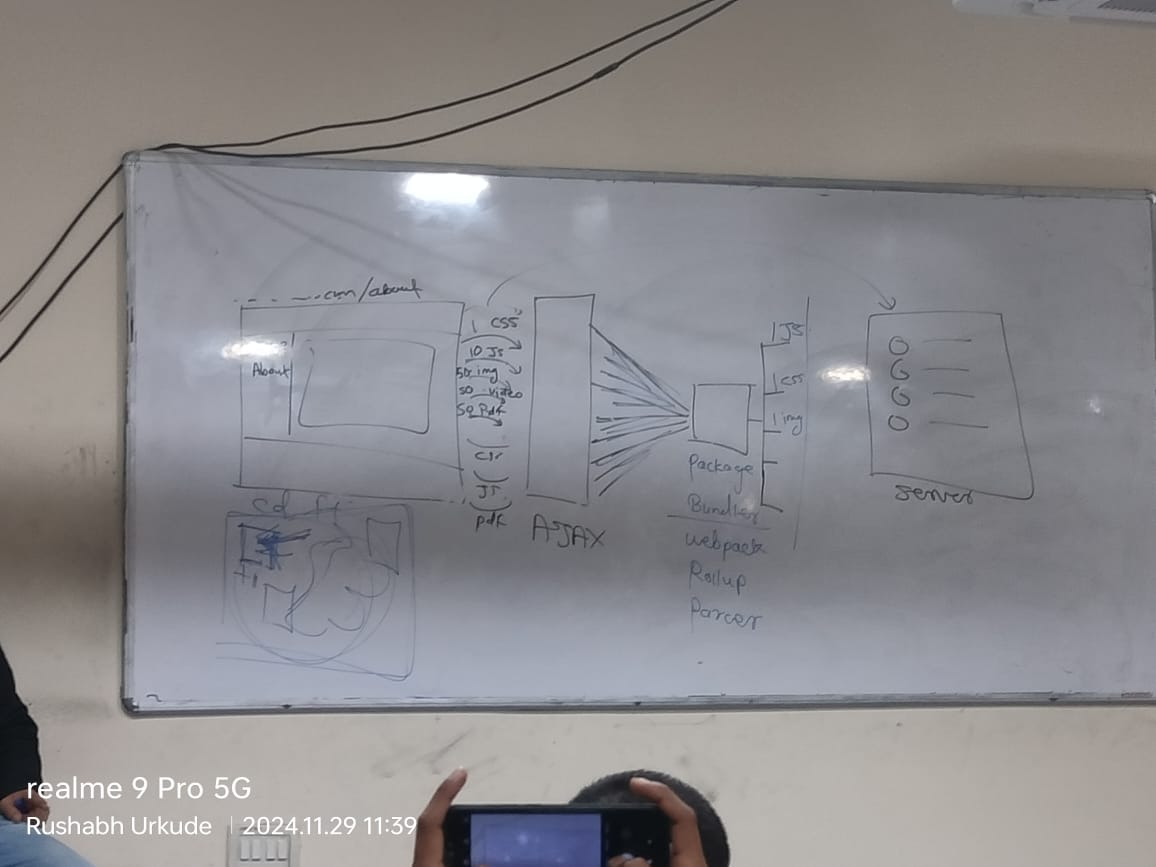 - - - ...com/about
About
1 CSS
10 JS
50 img
50 video
50 Pdf
JS
pdf
AJAX
Package
Bundler
webpack
Rollup
Parcer
1 JS
1 css
1 img
server
realme 9 Pro 5G
Rushabh Urkude | 2024.11.29 11:39